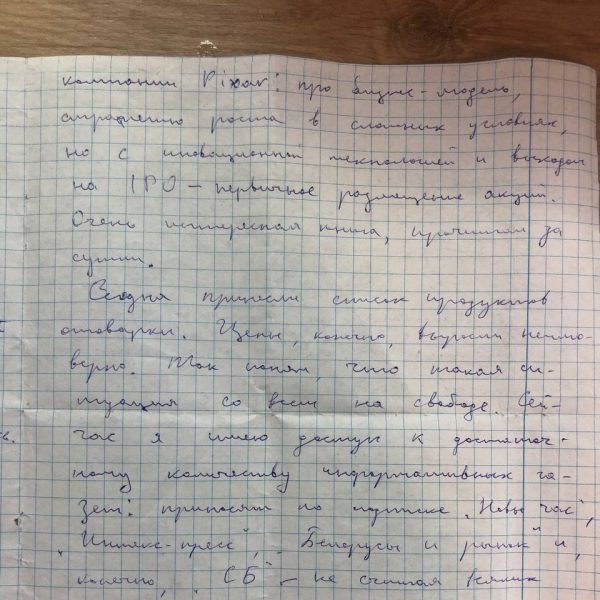 компании Pixar: про бизнес-модель,
стратегию роста в сложных условиях,
но с иновационной технологией и выходом
на IPO – первичное размещение акций.
Очень интересная книга, прочитал за
сутки.
Сегодня принесли список продуктов
отоварки. Цены, конечно, выросли неимо-
верно. Так понял, что такая си-
туация со всем на свободе. Сей-
час я имею доступ к достаточ-
ному количеству информативных га-
зет: приносят по подписке „Новы час",
„Интекс-пресс", „Белорусы и рынок" и,
конечно, „СБ" – не считая всяких